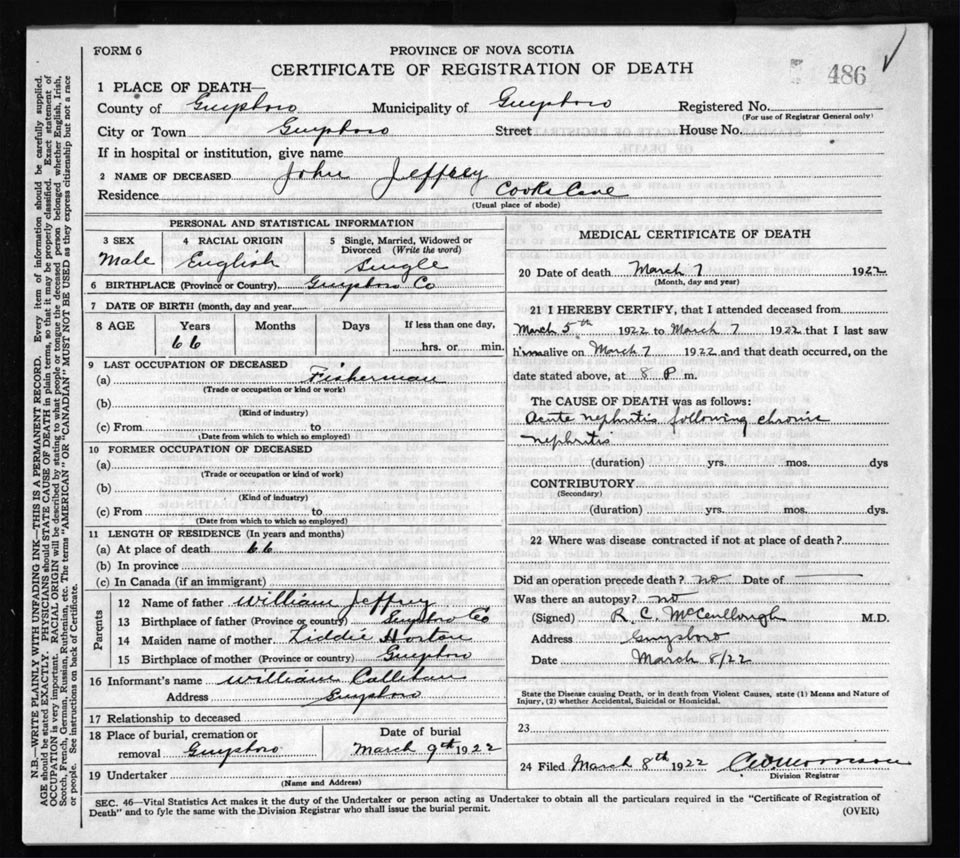 FORM 6
PROVINCE OF NOVA SCOTIA
CERTIFICATE OF REGISTRATION OF DEATH
486
1 PLACE OF DEATH—
County of Guysboro Municipality of Guysboro Registered No.
(For use of Registrar General only)
City or Town Guysboro Street House No.
If in hospital or institution, give name
2 NAME OF DECEASED John Jeffrey
Residence Cooks Cove
(Usual place of abode)
PERSONAL AND STATISTICAL INFORMATION
3 SEX 4 RACIAL ORIGIN 5 Single, Married, Widowed or
Divorced (Write the word)
Male English Single
6 BIRTHPLACE (Province or Country) Guysboro Co
7 DATE OF BIRTH (month, day and year)
8 AGE Years Months Days If less than one day,
66 hrs. or min.
9 LAST OCCUPATION OF DECEASED
(a) Fisherman
(Trade or occupation or kind or work)
(b)
(Kind of industry)
(c) From to
(Date from which to which so employed)
10 FORMER OCCUPATION OF DECEASED
(a)
(Trade or occupation or kind of work)
(b)
(Kind of industry)
(c) From to
(Date from which to which so employed)
11 LENGTH OF RESIDENCE (In years and months)
(a) At place of death 66
(b) In province
(c) In Canada (if an immigrant)
Parents
12 Name of father William Jeffrey
13 Birthplace of father (Province or country) Guysboro Co
14 Maiden name of mother Liddie Horton
15 Birthplace of mother (Province or country) Guysboro
16 Informant's name William Callihan
Address Guysboro
17 Relationship to deceased
18 Place of burial, cremation or Date of burial
removal Guysboro March 9th 1922
19 Undertaker
(Name and Address)
MEDICAL CERTIFICATE OF DEATH
20 Date of death March 7 1922
(Month, day and year)
21 I HEREBY CERTIFY, that I attended deceased from
March 5th 1922 to March 7 1922 that I last saw
him alive on March 7 1922 and that death occurred, on the
date stated above, at 8 P m.
The CAUSE OF DEATH was as follows:
Acute nephritis following chronic
nephritis
(duration) yrs. mos. dys
CONTRIBUTORY
(Secondary)
(duration) yrs. mos. dys.
22 Where was disease contracted if not at place of death?
Did an operation precede death? no Date of
Was there an autopsy? no
(Signed) R. C. McCullough M.D.
Address Guysboro
Date March 8/22
State the Disease causing Death, or in death from Violent Causes, state (1) Means and Nature of
Injury, (2) whether Accidental, Suicidal or Homicidal.
23
24 Filed March 8th 1922
Division Registrar
SEC. 46—Vital Statistics Act makes it the duty of the Undertaker or person acting as Undertaker to obtain all the particulars required in the "Certificate of Registration of
Death" and to fyle the same with the Division Registrar who shall issue the burial permit.
(OVER)
N.B.—WRITE PLAINLY WITH UNFADING INK—THIS IS A PERMANENT RECORD. Every item of information should be carefully supplied.
AGE should be stated EXACTLY. PHYSICIANS should STATE CAUSE OF DEATH in plain terms, so that it may be properly classified. Exact statement of
OCCUPATION is very important. RACIAL ORIGIN will be described by stating to what people or tongue the deceased person belonged whether English, Irish,
Scotch, French, German, Russian, Ruthenian, etc. The terms "AMERICAN" OR "CANADIAN" MUST NOT BE USED as they express citizenship but not a race
or people. See instructions on back of Certificate.